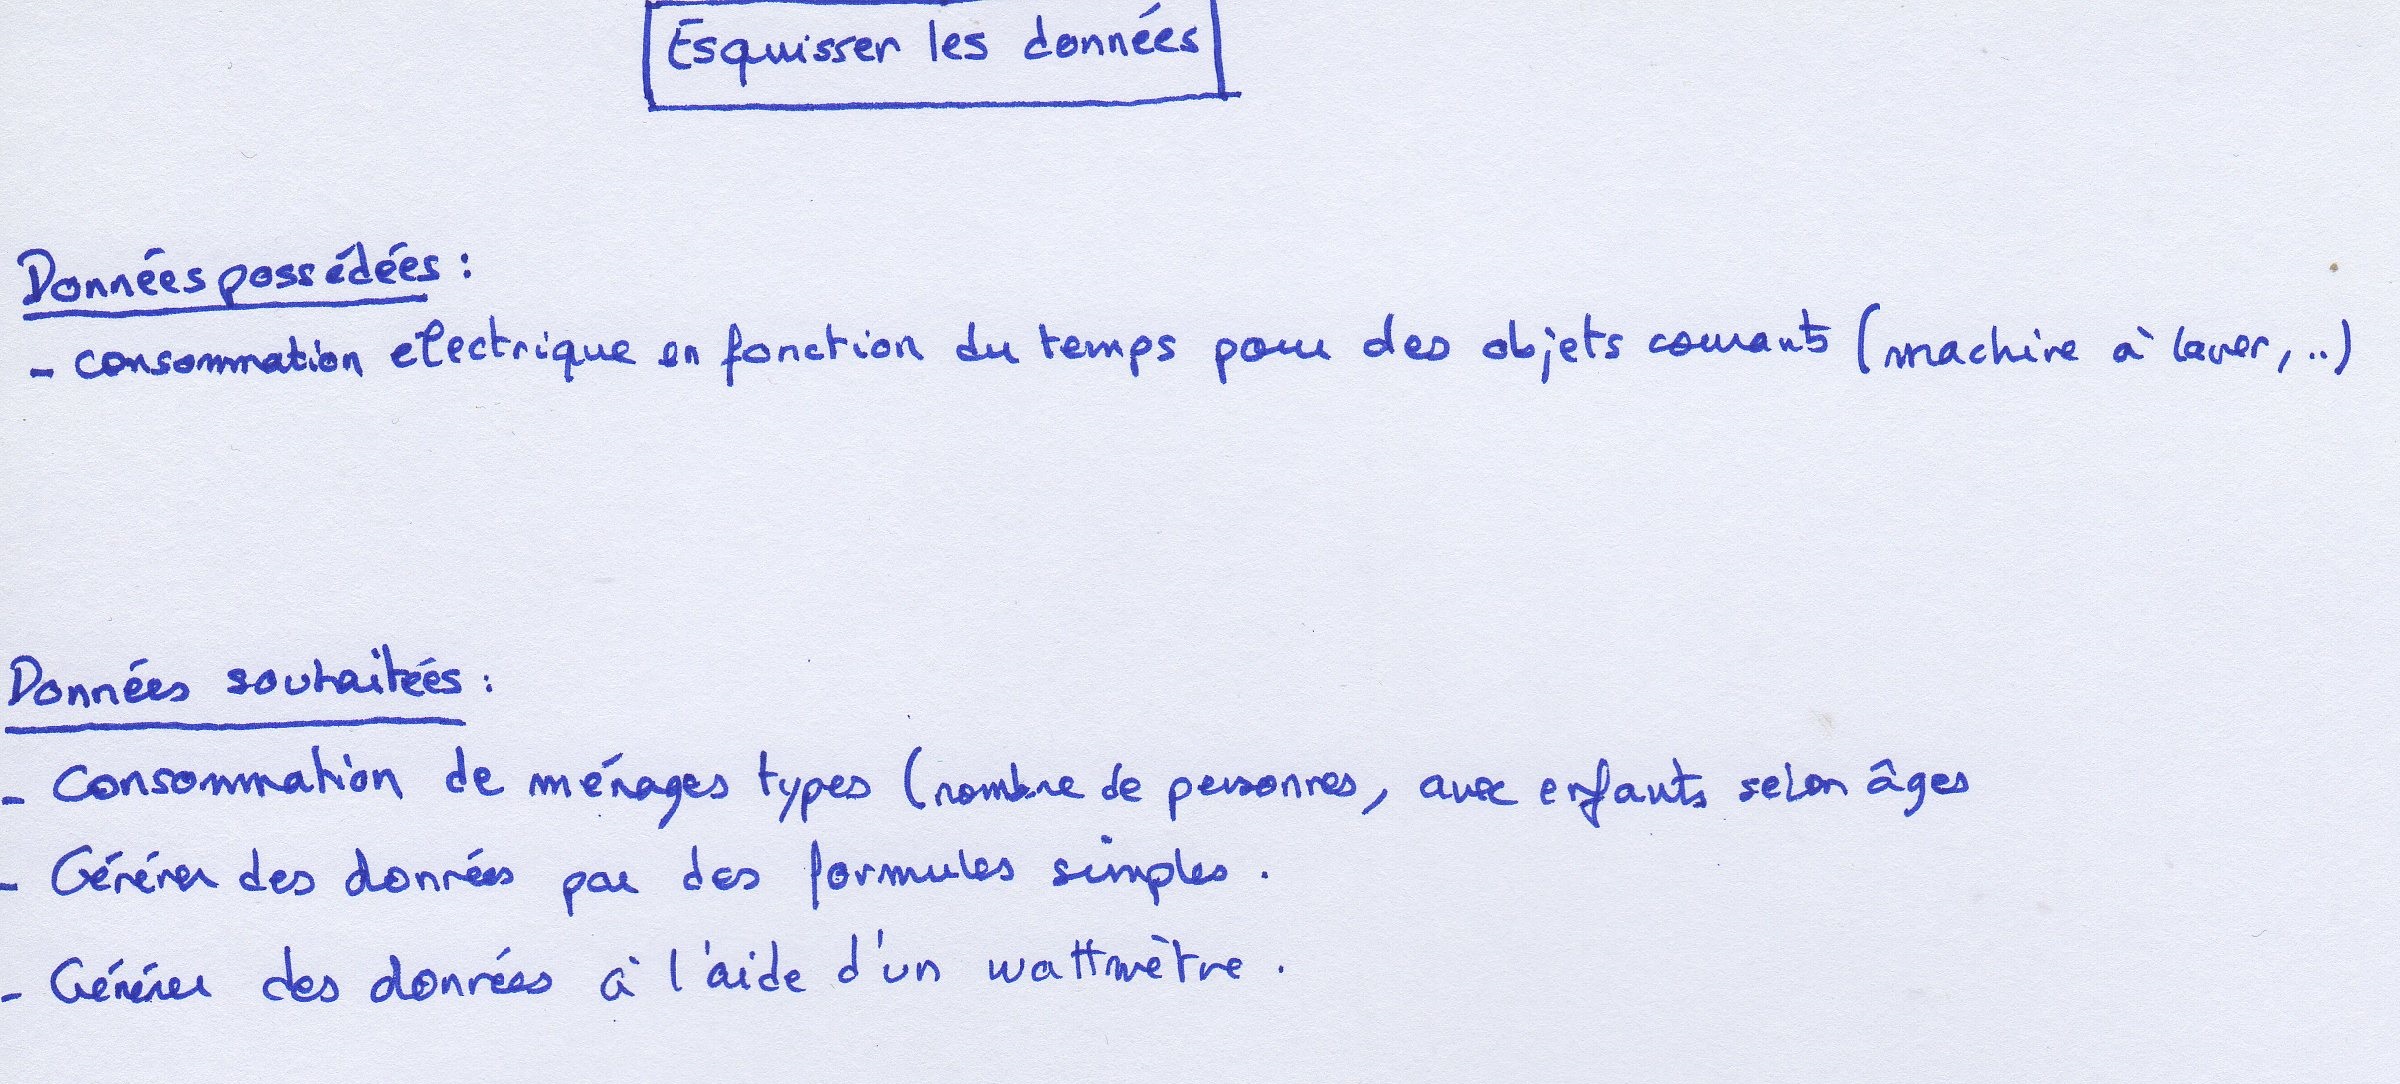 Esquisser les données
Données possédées :
- consommation électrique en fonction du temps pour des objets courants (machine à laver, ..)
Données souhaitées :
- Consommation de ménages types (nombre de personnes, avec enfants selon âges
- Générer des données par des formules simples.
- Générer des données à l'aide d'un wattmètre.